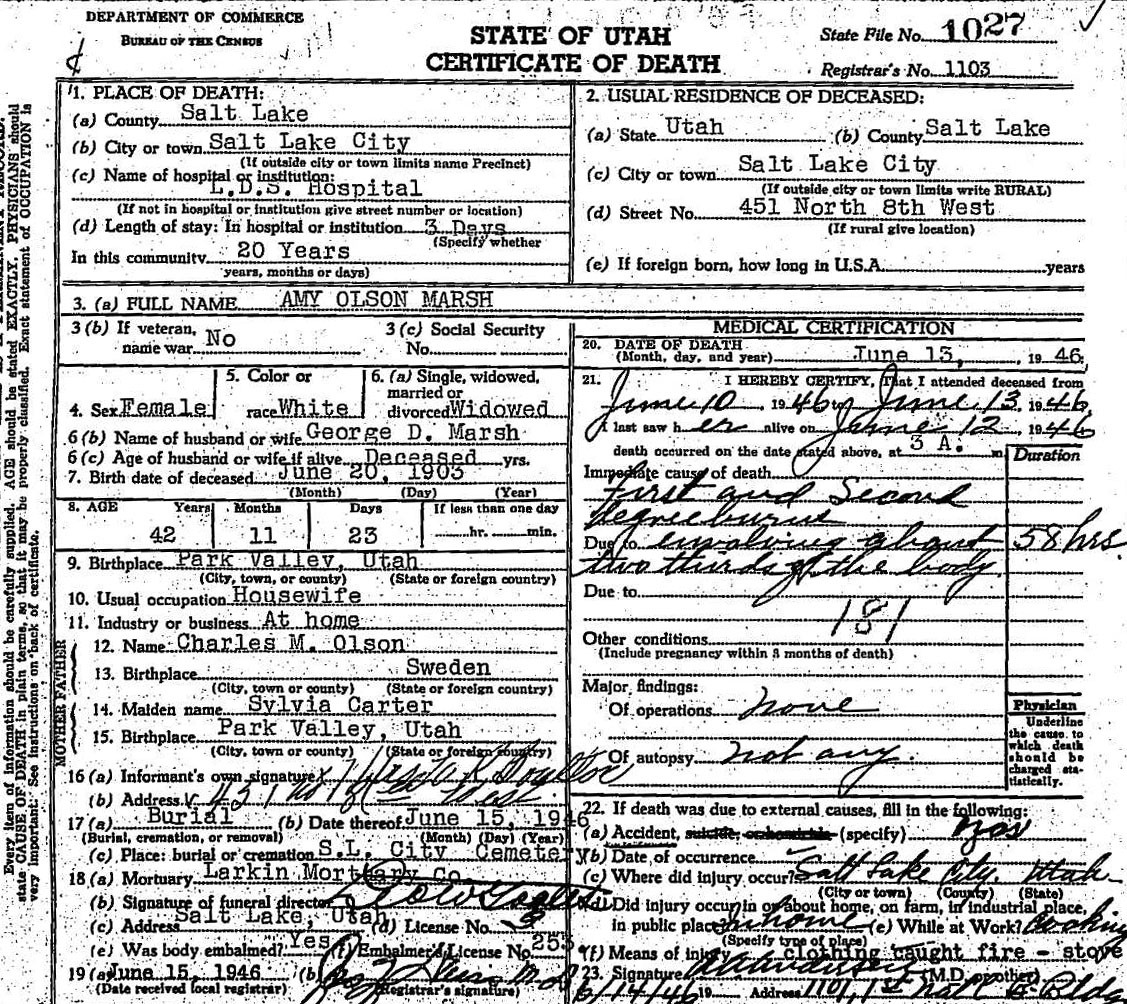 DEPARTMENT OF COMMERCE
BUREAU OF THE CENSUS
STATE OF UTAH
CERTIFICATE OF DEATH
State File No. 1027
Registrar's No. 1103
1. PLACE OF DEATH:
(a) County Salt Lake
(b) City or town Salt Lake City
(If outside city or town limits name Precinct)
(c) Name of hospital or institution:
L.D.S. Hospital
(If not in hospital or institution give street number or location)
(d) Length of stay: In hospital or institution 3 Days
(Specify whether
In this community 20 Years
years, months or days)
2. USUAL RESIDENCE OF DECEASED:
(a) State Utah (b) County Salt Lake
(c) City or town Salt Lake City
(If outside city or town limits write RURAL)
(d) Street No. 451 North 8th West
(If rural give location)
(e) If foreign born, how long in U.S.A. years
3. (a) FULL NAME AMY OLSON MARSH
3 (b) If veteran, name war No
3 (c) Social Security No.
4. Sex Female
5. Color or race White
6. (a) Single, widowed, married or divorced Widowed
6 (b) Name of husband or wife George D. Marsh
6 (c) Age of husband or wife if alive Deceased yrs.
7. Birth date of deceased June 20, 1903
(Month) (Day) (Year)
8. AGE Years Months Days If less than one day
42 11 23 hr. min.
9. Birthplace Park Valley, Utah
(City, town, or county) (State or foreign country)
10. Usual occupation Housewife
11. Industry or business At home
FATHER
12. Name Charles M. Olson
13. Birthplace Sweden
(City, town or county) (State or foreign country)
MOTHER
14. Maiden name Sylvia Carter
15. Birthplace Park Valley, Utah
(City, town or county) (State or foreign country)
16 (a) Informant's own signature
(b) Address
17 (a) Burial (b) Date thereof June 15, 1946
(Burial, cremation, or removal) (Month) (Day) (Year)
(c) Place: burial or cremation S.L. City Cemetery
18 (a) Mortuary Larkin Mortuary Co.
(b) Signature of funeral director
(c) Address Salt Lake, Utah (d) License No. 3
(e) Was body embalmed? Yes (f) Embalmer's License No. 253
19 (a) June 15, 1946 (b)
(Date received local registrar) Registrar's signature)
MEDICAL CERTIFICATION
20. DATE OF DEATH
(Month, day, and year) June 13, 1946
21. I HEREBY CERTIFY, That I attended deceased from
June 10 1946 to June 13 1946
I last saw her alive on June 12, 1946
death occurred on the date stated above, at 3 A. m.
Duration
Immediate cause of death
First and Second
degree burns
Due to involving about 58 hrs.
two thirds of the body
Due to
181
Other conditions
(Include pregnancy within 3 months of death)
Major findings:
Of operations none
Of autopsy not any.
Physician
Underline
the cause to
which death
should be
charged sta-
tistically.
22. If death was due to external causes, fill in the following:
(a) Accident, suicide, or homicide (specify) yes
(b) Date of occurrence
(c) Where did injury occur? Salt Lake City, Utah
(City or town) (County) (State)
(d) Did injury occur in or about home, on farm, in industrial place,
in public place? In home (e) While at Work? Cooking
(Specify type of place)
(f) Means of injury clothing caught fire - stove
23. Signature (M.D. or other)
6/14/46 19 Address 1101, 1st Nat'l Bldg
Every item of information should be carefully supplied. AGE should be stated EXACTLY. PHYSICIANS should
state CAUSE OF DEATH in plain terms, so that it may be properly classified. Exact statement of OCCUPATION is
very important. See instructions on back of certificate.